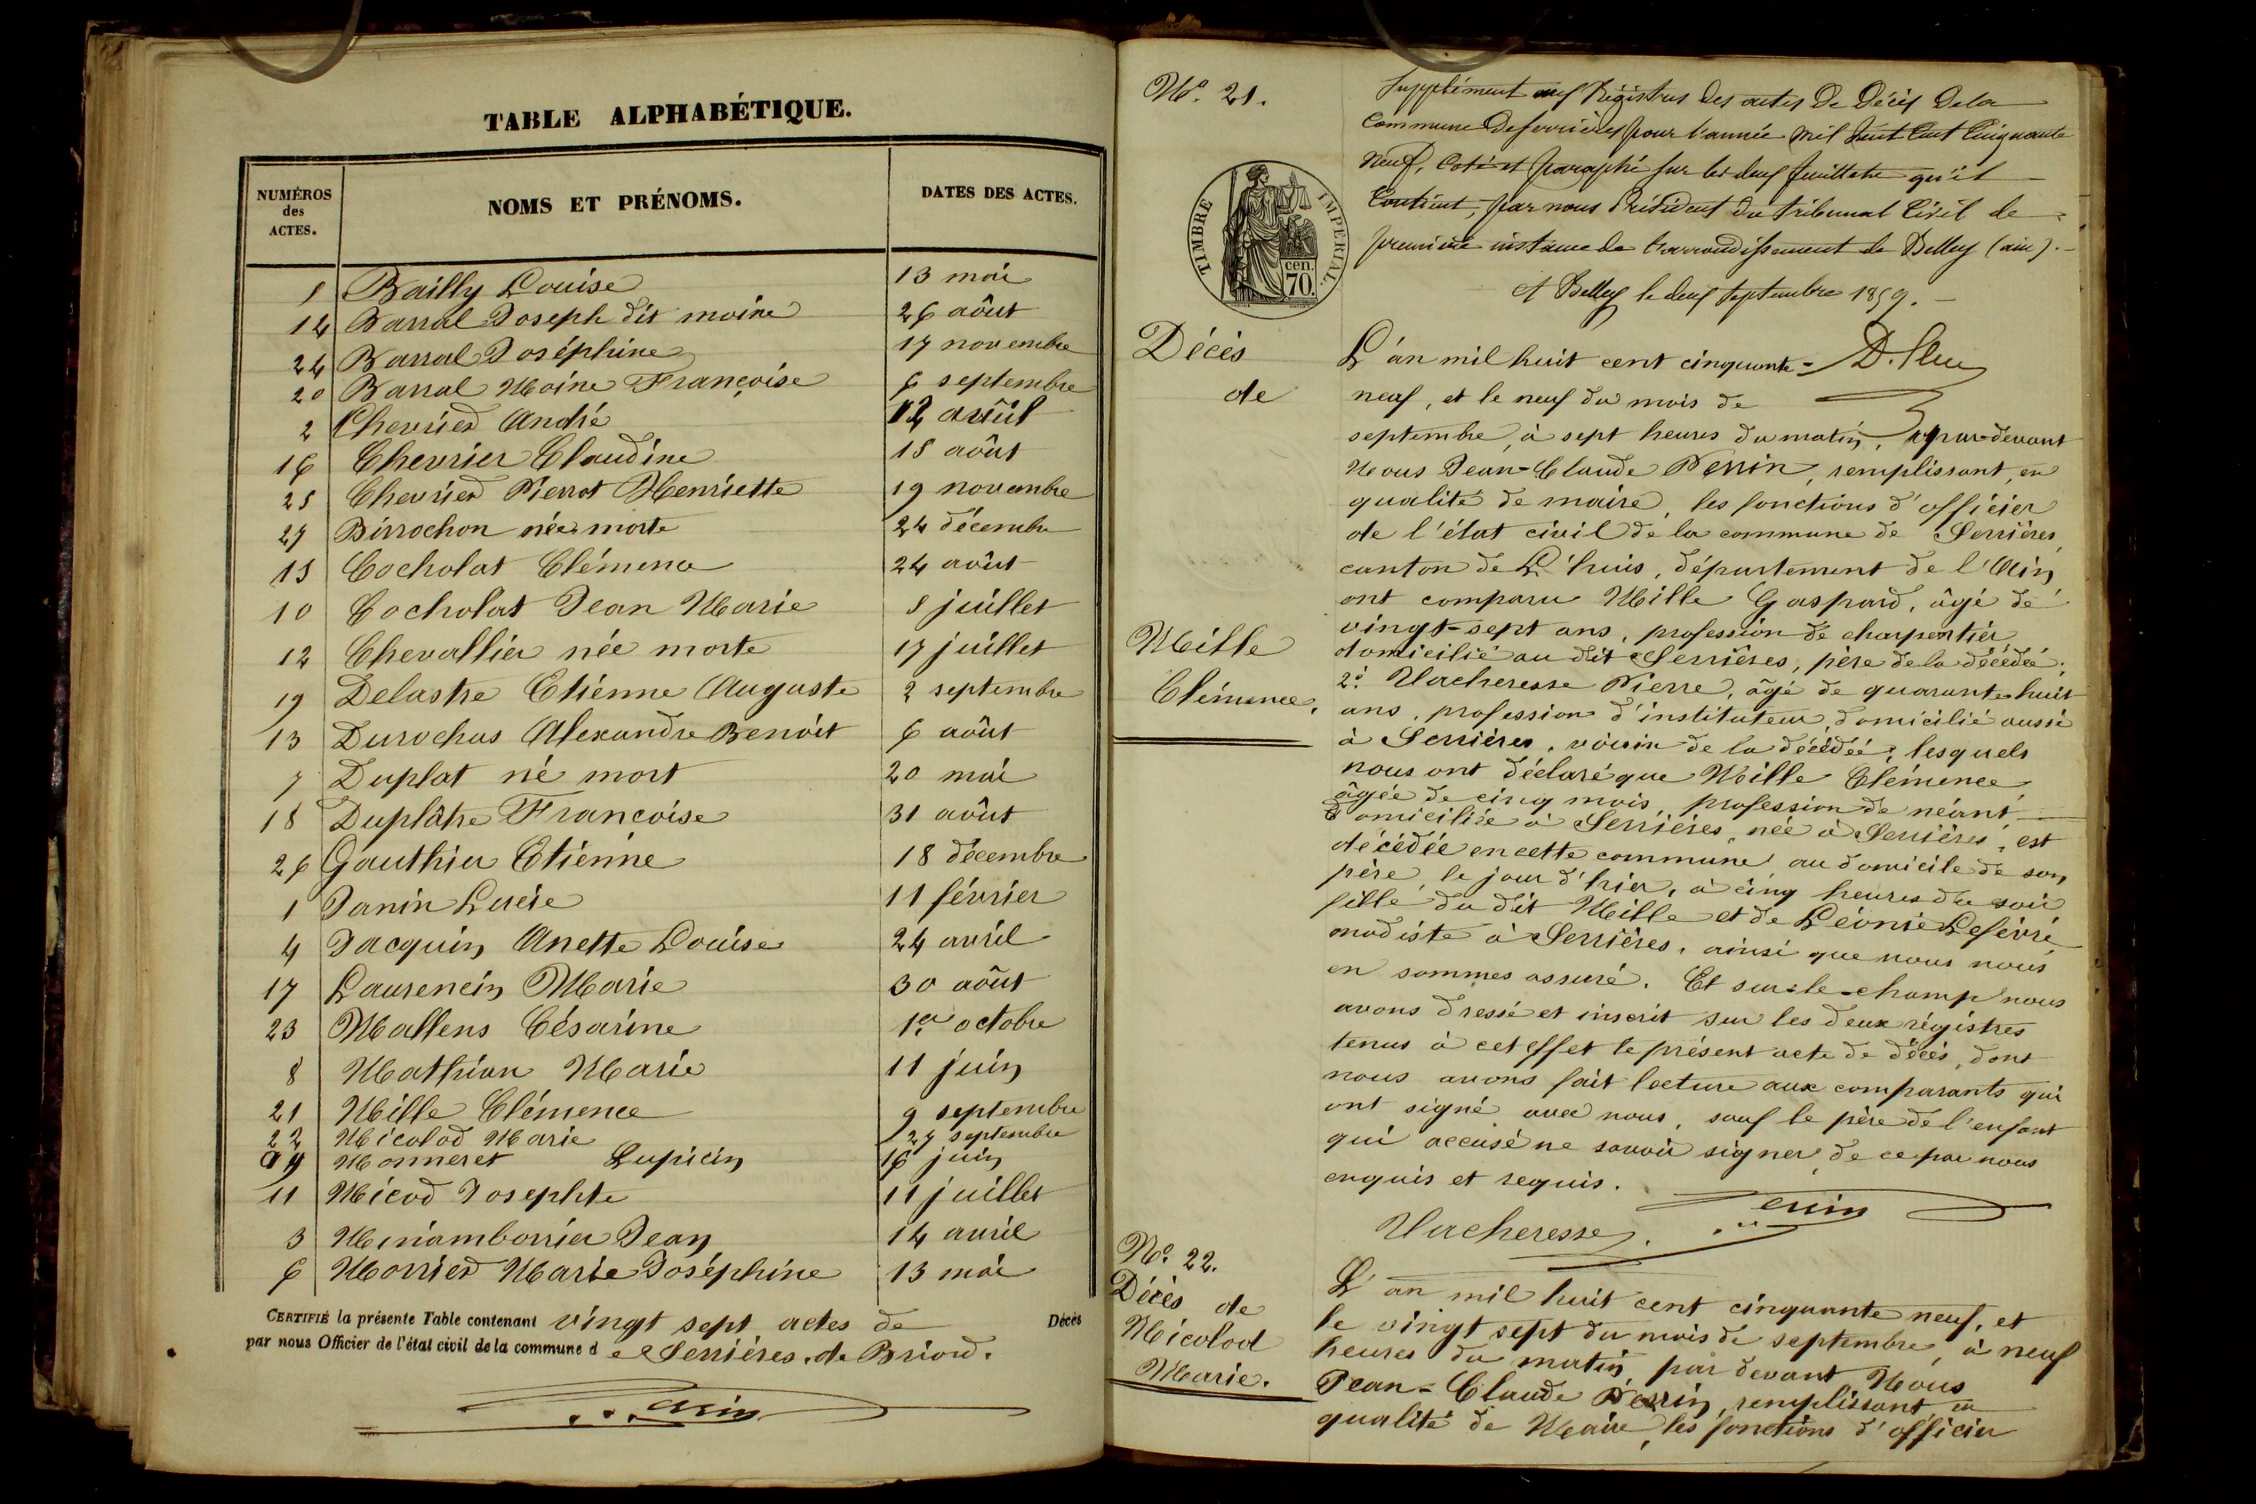 TABLE ALPHABÉTIQUE.
NUMÉROS des ACTES. NOMS ET PRÉNOMS. DATES DES ACTES.
5 Bailly Louise 13 mai
14 Barral Joseph dit moine 26 août
24 Barral Joséphine 17 novembre
20 Barral Moine Françoise 6 septembre
2 Chevrier André 12 avril
16 Chevrier Claudine 28 août
25 Chevrier Pierrot Henriette 19 novembre
27 Birrochon née morte 24 décembre
15 Cocholat Clémence 24 août
10 Cocholat Jean Marie 5 juillet
12 Chevallier née morte 17 juillet
19 Delastre Etienne Auguste 2 septembre
13 Durochas Alexandre Benoit 6 août
7 Duplat né mort 20 mai
18 Duplâtre Françoise 31 août
26 Gauthier Etienne 18 décembre
1 Janin Lucie 11 février
4 Jacquin Anette Louise 24 avril
17 Laurencin Marie 30 août
23 Mallens Césarine 1er octobre
8 Mathian Marie 11 juin
21 Mille Clémence 9 septembre
22 Micolod Marie 27 septembre
9 Monneret Lupicin 16 juin
11 Micod Josephte 11 juillet
3 Minamborrier Jean 14 avril
6 Morrier Marie Joséphine 13 mai
CERTIFIÉ la présente Table contenant vingt sept actes de Décès
par nous Officier de l'état civil de la commune de Serrières de Briord.
Perrin
No. 21.
Supplément aux Régistres des actes de Décès de la
Commune de Serrières pour l'année mil huit Cent Cinquante
neuf, Coté et paraphé sur les deux feuillets qu'il
Contient, par nous Président du tribunal Civil de
première instance de l'arrondissement de Belley (ain).
A Belley le deux Septembre 1859.
TIMBRE IMPÉRIAL.
cen. 70.
Décès
de
Mille
Clémence.
L'an mil huit cent cinquante-
neuf, et le neuf du mois de
septembre, à sept heures du matin, par-devant
Nous Jean-Claude Perrin, remplissant, en
qualité de maire, les fonctions d'officier
de l'état civil de la commune de Serrières,
canton de L'huis, département de l'Ain
ont comparu Mille Gaspard, âgé de
vingt-sept ans, profession de charpentier
domicilié au dit Serrières, père de la décédée;
2º. Vacheresse Pierre, âgé de quarante-huit
ans, profession d'instituteur, domicilié aussi
à Serrières, voisin de la décédée; lesquels
nous ont déclaré que Mille Clémence
âgée de cinq mois, profession de néant
domiciliée à Serrières, née à Serrières, est
décédée en cette commune au domicile de son
père, le jour d'hier, à cinq heures du soir
fille du dit Mille et de Léonie Lefèvre
modiste à Serrières, ainsi que nous nous
en sommes assuré. Et sur-le-champ nous
avons dressé et inscrit sur les deux régistres
tenus à cet effet le présent acte de décès, dont
nous avons fait lecture aux comparants qui
ont signé avec nous, sauf le père de l'enfant
qui accusé ne savoir signer, de ce par nous
enquis et requis.
Vacheresse. Perrin
No. 22.
Décès de
Micolod
Marie.
L'an mil huit cent cinquante neuf, et
le vingt sept du mois de septembre, à neuf
heures du matin, par devant Nous
Jean-Claude Perrin, remplissant, en
qualité de Maire, les fonctions d'officier